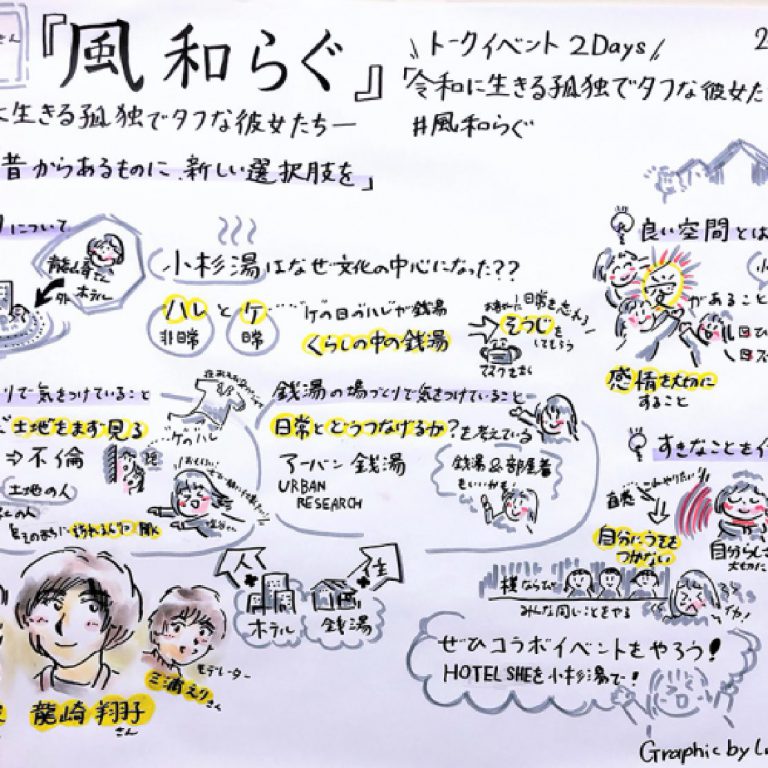 『風和らぐ』
\\ トークイベント 2Days //
に生きる孤独でタフな彼女たち―
「令和に生きる孤独でタフな彼女た
#風和らぐ
昔からあるものに、新しい選択肢を」
について
龍崎さん
ホテル
小杉湯はなぜ文化の中心になった??
ハレとケ
非日常
日常
ケの日のハレが銭湯
くらしの中の銭湯
日常を忘れる
そうじを
してもらう
良い空間とは
愛があること
感情を大切に
すること
りで気をつけていること
土地をまず見る
ケのハレ
⇒ 不倫
土地の人
銭湯の場づくりで気をつけていること
日常とどうつなげるか?を考えている
アーバン 銭湯
URBAN
RESEARCH
銭湯&部屋着
もいいかも!
すきなことをイ
直感
自分にうそを
つかない
自分らしさ
大切に
横ならび
みんな同いことをやる
人
生
ホテル
銭湯
龍崎翔子
さん
モデレーター
三浦えりさん
ぜひコラボイベントをやろう!
HOTEL SHEを小杉湯で!
Graphic by